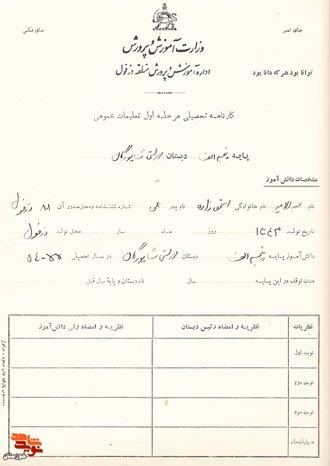 جای تمبر
جای عکس
وزارت آموزش و پرورش
توانا بود هر که دانا بود
اداره آموزش و پرورش منطقه دزفول
کارنامه تحصیلی مرحله اول تعلیمات عمومی
پایه پنجم الف دبستان دولتی شاپورگان
مشخصات دانش آموز
نام نام خانوادگی اسحق زاده نام پدر علی شماره شناسنامه و محل صدور آن ۸۱ دزفول
تاریخ تولد روز ماه سال محل تولد دزفول
دانش آموز پایه پنجم الف دبستان دولتی شاپورگان در سال تحصیلی ۵۵-۵۴
مدت توقف در این پایه سال دبستان و پایهٔ سال قبل
نظریات
نظریه و امضاء رئیس دبستان
نظریه و امضاء ولی دانش‌آموز
نوبت اول
نوبت دوم
نوبت سوم
در پایان سال
نوید شاهد
خوزستان